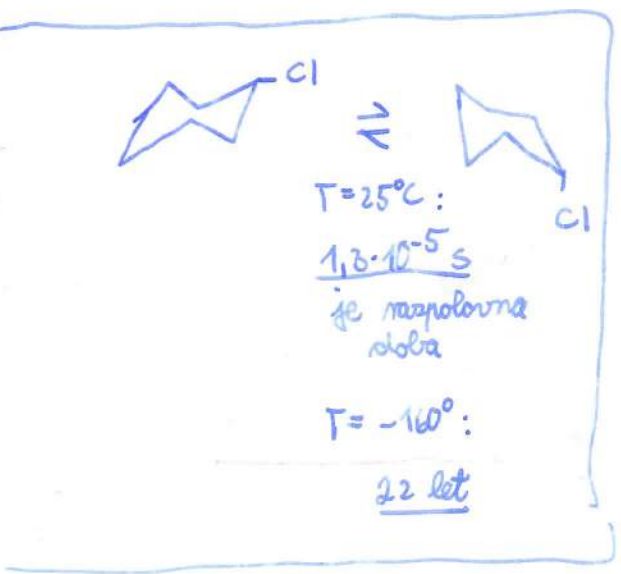 Cl
⇌
Cl
T=25°C:
1,3·10⁻⁵ s
je razpolovna
doba
T= -160°:
22 let